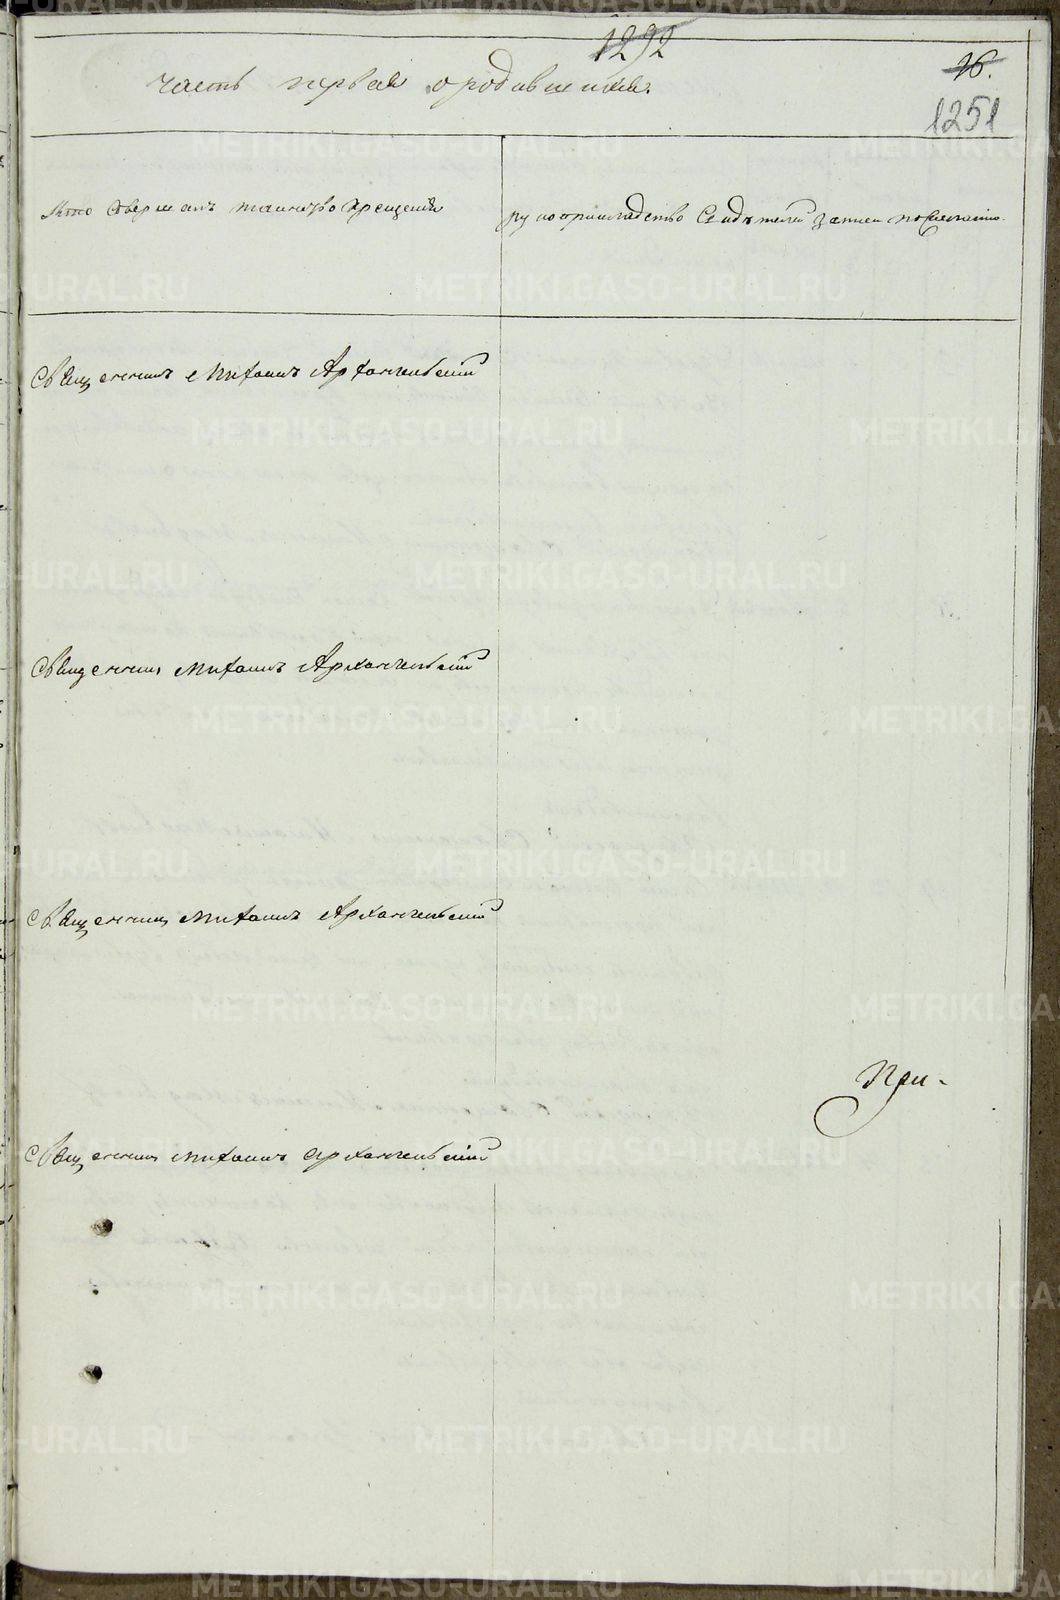 1292
16.
1251
часть первая о родившихся.
Кто совершалъ таинство крещения
рукоприкладство свидетелей записи по желанию
Священникъ Михаилъ Архангельский
Священникъ Михаилъ Архангельский
Священникъ Михаилъ Архангельский
При-
Священникъ Михаилъ Архангельский